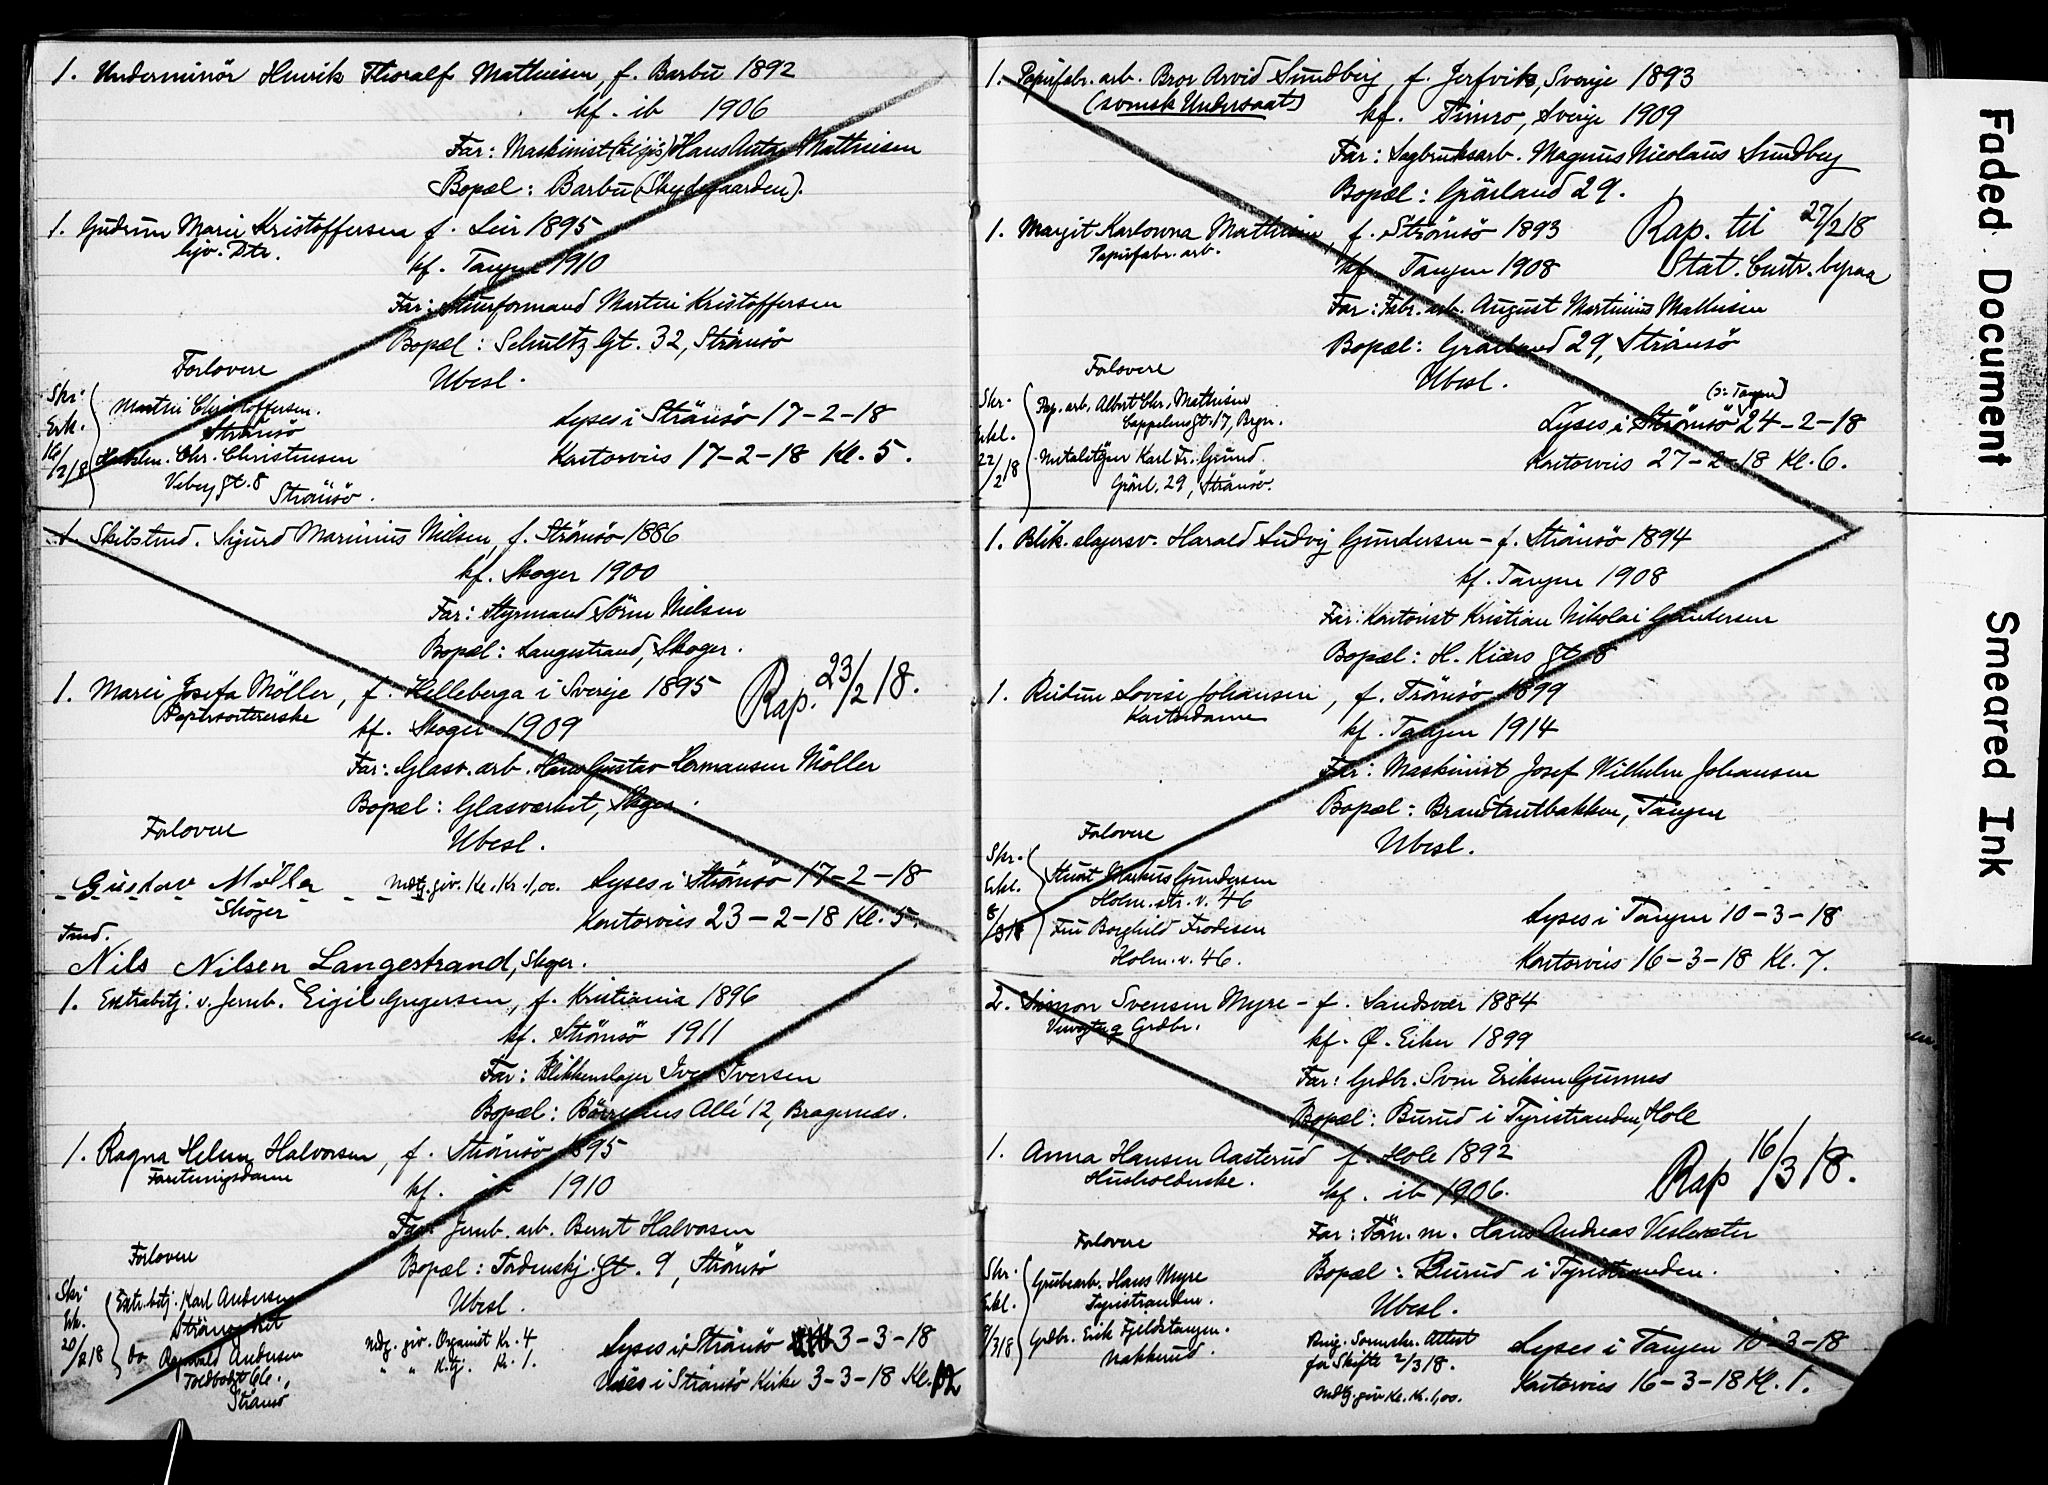 1. Underminör Henrik Thoralf Mathiesen, f. Barbu 1892
kf. ib 1906
Far: Maskinist Hans Anton Mathiesen
Bopæl: Barbu (Skydegaarden).
1. Gudrun Marie Kristoffersen f. Lier 1895
hjv. Dtr.
kf. Tangen 1910
Far: Stuerformand Martin Kristoffersen
Bopæl: Schultz Gt. 32, Strömsö
Forlovere
Ubesl.
Skr. Erk. 16/2 18
Martin Christoffersen.
Strömsö
Chr. Christensen
Veberg Gt. 8
Strömsö.
Lyses i Strömsö 17-2-18
Kontorvies 17-2-18 Kl. 5.
1. Skibstmd. Sigurd Marinius Nielsen, f. Strömsö 1886
kf. Skoger 1900
Far: Styrmand Sörn Nielsen
Bopæl: Langestrand, Skoger.
1. Marie Josefa Möller, f. Helleberga i Sverje 1895
Papirsortererske
Rap. 23/2 18.
kf. Skoger 1909
Far: Glasv. arb. Hans Gustav Hermansen Möller
Bopæl: Glasværket, Skoger.
Forlovere
Ubesl.
Gustav Möller
Skoger
Mdtg. giv. Kl. Kr. 1,00.
Lyses i Strömsö 17-2-18
Kontorvies 23-2-18 Kl. 5.
Tmd.
Nils Nilsen Langestrand, Skoger.
1. Extrabetj. v. Jernb. Eigil Gregersen, f. Kristiania 1896
kf. Strömsö 1911
Far: Blikkenslager Iver Iversen
Bopæl: Börresens Allé 12, Bragernæs.
1. Ragna Helene Halvorsen, f. Strömsö 1895
Forretningsdame
kf. ib 1910
Far: Jernb. arb. Bernt Halvorsen
Forlovere
Bopæl: Tordenskj. Gt. 9, Strömsö
Ubesl.
Skr. Erk. 20/2 18
Extr. betj. Karl Andersen
Strömsö
do Ragnvald Andersen
Strömsö
Mdtg. giv. Organist Kr. 4
" " K.tj. Kr. 1.
Lyses i Strömsö 3-3-18
Vies i Strömsö Kirke 3-3-18 Kl. 12
1. Papirfabr. arb. Bror Arvid Sundberg, f. Jerfvik, Sverje 1893
(svensk Undersaat)
kf. Timro, Sverje 1909
Far: Sagbruksarb. Magnus Nicolaus Sundberg
Bopæl: Grönland 29.
1. Margit Karlovna Mathisen, f. Strömsö 1893
Papirfabr. arb.
Rap. til 27/2 18
Stat. Centr. byraa
kf. Tangen 1908
Far: Fabr. arb. August Martinius Mathisen
Bopæl: Grönland 29, Strömsö
Forlovere
Ubesl.
Skr. Erkl. 22/2 18
Pap. arb. Albert Chr. Mathisen
Cappelens Gt. 17, Brgn.
Metalstöper Karl Fr. Grund.
Grönl. 29, Strömsö.
(o: Tangen)
Lyses i Strömsö 24-2-18
Kontorvies 27-2-18 Kl. 6.
1. Blik. slagersv. Harald Ludvig Gundersen - f. Strömsö 1894
kf. Tangen 1908
Far: Kontorist Kristian Nikolai Gundersen
Bopæl: H. Kiærs Gt. 8
1. Reidun Lovise Johansen, f. Tromsö 1899
Kontordame
kf. Tangen 1914
Far: Maskinist Josef Wilhelm Johansen
Bopæl: Brandtautbakken, Tangen
Forlovere
Ubesl.
Skr. Erkl. 8/3 18
Markus Gundersen
Holm. str. v. 46
Fru Borghild Frodesen
Holm. v. 46.
Lyses i Tangen 10-3-18
Kontorvies 16-3-18 Kl. 7.
2. Simon Svensen Myre - f. Sandsvær 1884
Grdbr.
kf. Ø. Eiker 1899
Far: Grdbr. Sven Eriksen Gunnes
Bopæl: Burud i Tyristranden, Hole
1. Anna Hansen Aasterud f. Hole 1892
Husholderske.
Rap 16/3 18.
kf. ib 1906.
Far: Töm. m. Hans Andreas Veslesæter
Forlovere
Bopæl: Burud i Tyristranden.
Ubesl.
Skr. Erkl. 9/3 18
Grubearb. Hans Myre
Tyristranden.
Grdbr. Erik Fjeldstangen.
Nakkerud.
Ring. Sorenskr. Attest
for Skifte 2/3 18.
Mdtg. giv Kl. Kr. 1,00.
Lyses i Tangen 10-3-18
Kontorvies 16-3-18 Kl. 1.
Faded Document
Smeared Ink